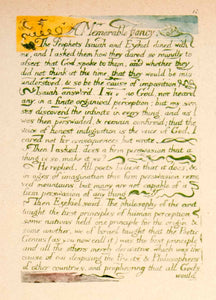 A Memorable Fancy.
The Prophets Isaiah and Ezekiel dined with
me, and I asked them how they dared so roundly to
assert that God spoke to them; and whether they
did not think at the time, that they would be mis-
understood, & so be the cause of imposition
Isaiah answer'd. I saw no God, nor heard
any, in a finite organical perception; but my sen-
ses discover'd the infinite in every thing, and as I
was then perswaded, & remain confirm'd; that the
voice of honest indignation is the voice of God, I
cared not for consequences but wrote.
Then I asked: does a firm perswasion that a
thing is so, make it so?
He replied. All poets believe that it does, & in
ages of imagination this firm perswasion remo-
ved mountains; but many are not capable of a
firm perswasion of any thing
Then Ezekiel said. The philosophy of the east
taught the first principles of human perception
some nations held one principle for the origin &
some another, we of Israel taught that the Poetic
Genius (as you now call it) was the first principle
and all the others merely derivative, which was the
cause of our despising the Priests & Philosophers
of other countries, and prophecying that all Gods
would